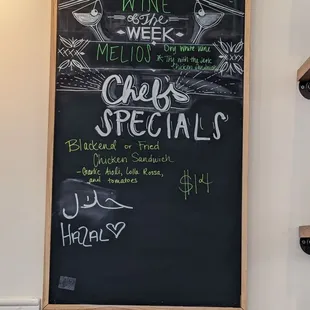 WINE
of the
WEEK
MELIOS Dry White Wine
Chef's
SPECIALS
Blackend or Fried
Chicken Sandwich
- Garlic Aioli, Lolla Rossa,
and tomatoes
$14
حلال
HAZAL♡